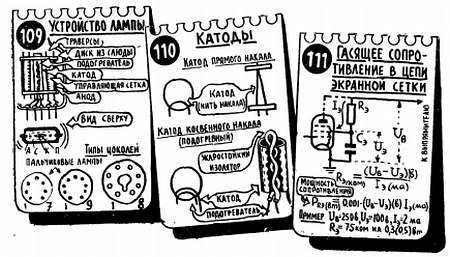 109
УСТРОЙСТВО ЛАМПЫ
ТРАВЕРСЫ
ДИСК ИЗ СЛЮДЫ
ПОДОГРЕВАТЕЛЬ
КАТОД
УПРАВЛЯЮЩАЯ СЕТКА
АНОД
ВИД СВЕРХУ
А С К П
ТИПЫ ЦОКОЛЕЙ
ПАЛЬЧИКОВЫЕ ЛАМПЫ
1 7 1 9 1 8
110
КАТОДЫ
КАТОД ПРЯМОГО НАКАЛА
КАТОД
(НИТЬ НАКАЛА)
КАТОД КОСВЕННОГО НАКАЛА
(ПОДОГРЕВНЫЙ)
ЖАРОСТОЙКИЙ
ИЗОЛЯТОР
КАТОД
ПОДОГРЕВАТЕЛЬ
111
ГАСЯЩЕЕ СОПРО-
ТИВЛЕНИЕ В ЦЕПИ
ЭКРАННОЙ СЕТКИ
Iэ
Rэ
Cэ
Uэ
Uв
К ВЫПРЯМИТЕЛЮ
Rэ(ком) = (Uв-Uэ)(в) / Iэ(ма)
МОЩНОСТЬ
СОПРОТИВЛЕНИЯ
PRэ(вт) = 0,001·(Uв-Uэ)(в) Iэ(ма)
ПРИМЕР Uв=250в, Uэ=100в, Iэ=2 ма
Rэ=75ком на 0,3(0,5)вт